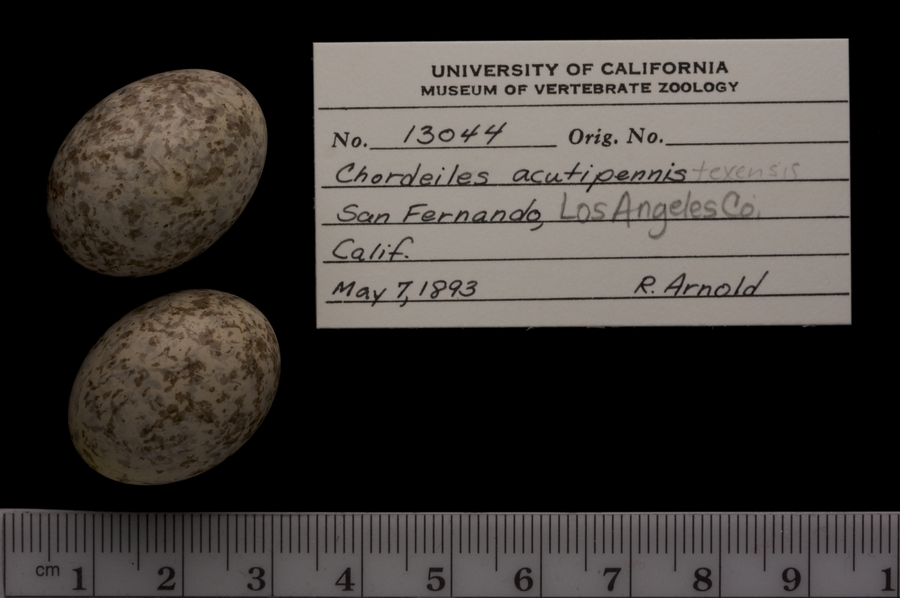 UNIVERSITY OF CALIFORNIA
MUSEUM OF VERTEBRATE ZOOLOGY
No. 13044 Orig. No.
Chordeiles acutipennis texensis
San Fernando, Los Angeles Co.
Calif.
May 7, 1893 R. Arnold
cm 1 2 3 4 5 6 7 8 9 1